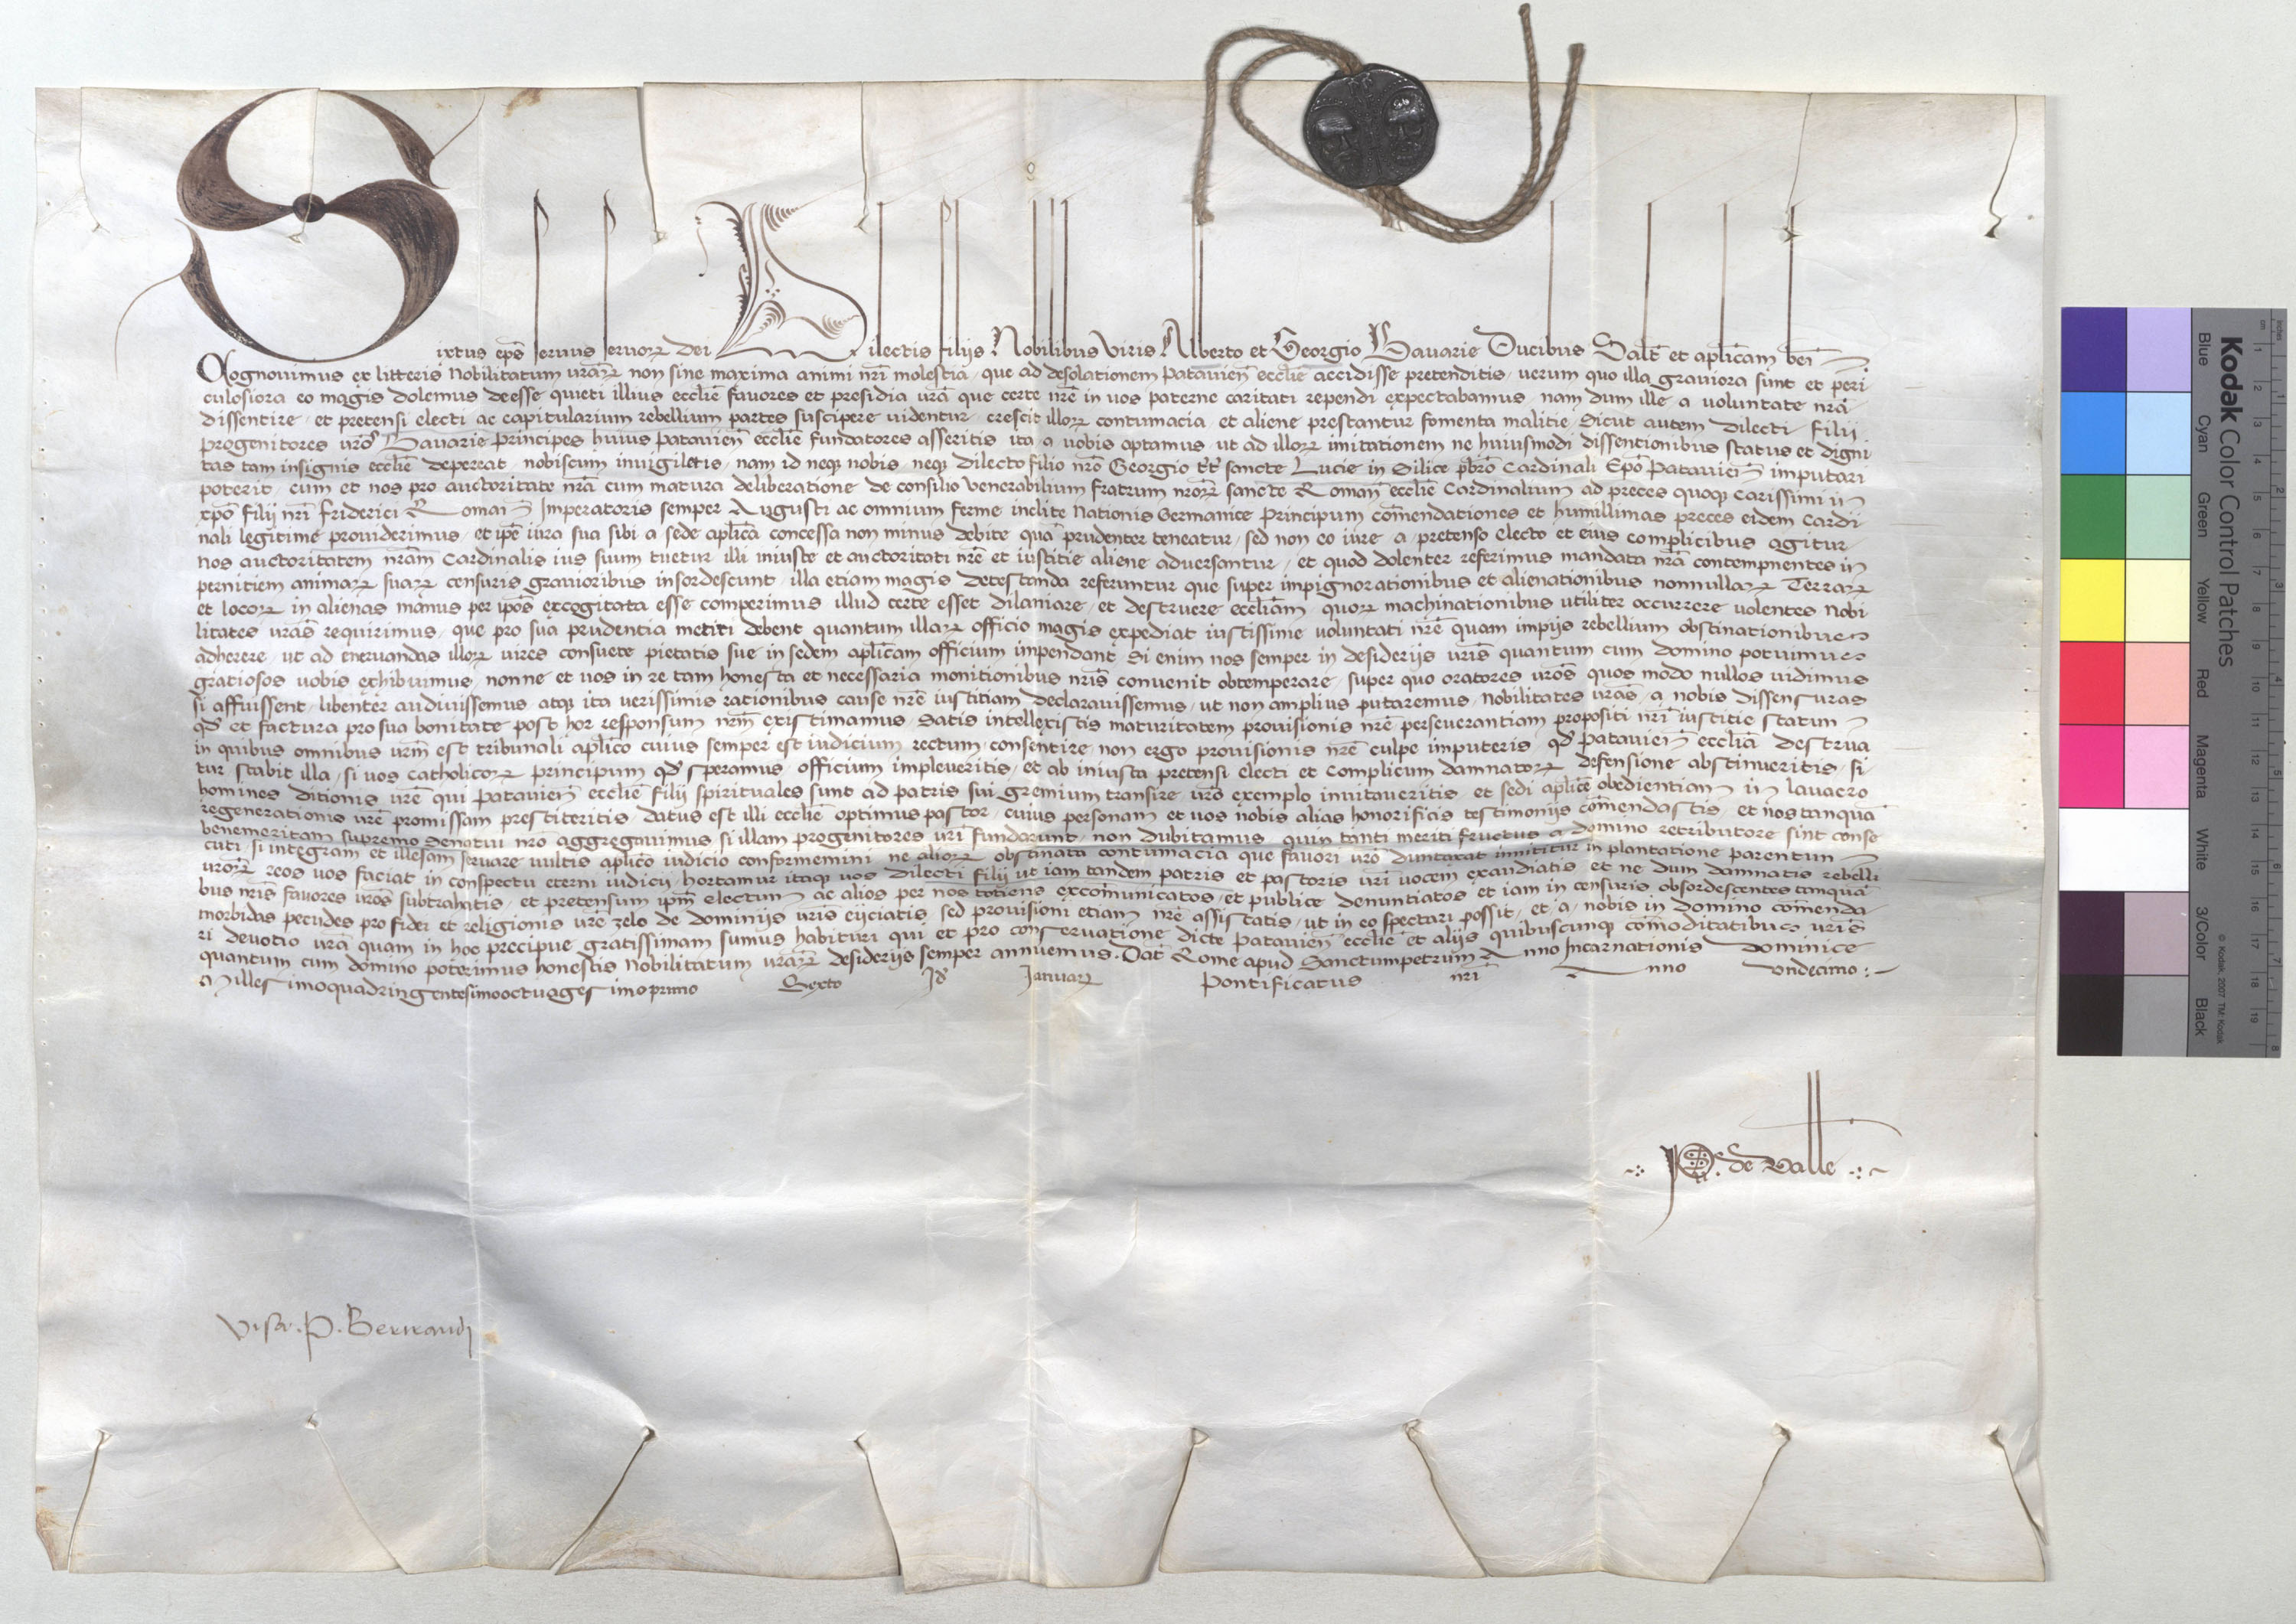 Sixtus ep̄s servus servoꝝ dei Dilectis filijs Nobilibus Viris Alberto et Georgio Bavarie Ducibus Salt̄ et ap̄licam ben̄
Cognovimus ex litteris Nobilitatum vr̄aꝝ non sine maxima animi nr̄i molestia, que ad desolationem Patavien̄ eccl̄ie accidisse pretenditis, verum quo illa graviora sunt et peri
culosiora eo magis dolemus deesse quieti illius eccl̄ie favores et presidia vr̄a que certe nr̄e in vos paterne caritati rependi expectabamus, nam dum ille a voluntate nr̄a
dissentire, et pretensi electi ac capitularium rebellium partes suscipere videntur, crescit illoꝝ contumacia, et aliene prestantur fomenta malitie, Sicut autem Dilecti filii
progenitores vr̄os Bavarie Principes huius Patavien̄ eccl̄ie fundatores asseritis ita a vobis optamus, ut ad illoꝝ imitationem ne huiusmodi dissentionibus status et digni
tas tam insignis eccl̄ie depereat, nobiscum invigiletis, nam id neqꝫ nobis, neqꝫ dilecto filio nr̄o Georgio tt̄ sancte Lucie in Silice pb̄ro Cardinali Ep̄o Patavien̄ imputari
poterit, cum et nos pro auctoritate nr̄a cum matura deliberatione de consilio venerabilium fratrum nr̄oꝝ sancte Roman̄ eccl̄ie Cardinalium ad preces quoqꝫ Carissimi in
xp̄o filii nr̄i Friderici Roman̄ Imperatoris semper Augusti ac omnium ferme inclite Nationis Germanice Principum com̄endationes et humillimas preces eidem Cardi
nali legitime providerimus, et ip̄e iura sua sibi a sede ap̄lica concessa non minus debite qua̅ prudenter teneatur, sed non eo iure a pretenso electo et eius complicibus agitur
nos auctoritatem nr̄am Cardinalis ius suum tuetur illi iniuste et auctoritati nr̄e et iustitie aliene adversantur, et quod dolenter referimus mandata nr̄a contempnentes in
pernitiem animaꝝ suaꝝ censuris gravioribus insordescunt, illa etiam magis detestanda referuntur que super impignorationibus et alienationibus nonnullaꝝ Terraꝝ
et locoꝝ in alienas manus per ip̄os excogitata esse comperimus illud certe esset dilaniare, et destruere eccl̄iam, quoꝝ machinationibus utiliter occurrere volentes Nobi
litates vr̄as requirimus, que pro sua prudentia metiri debent quantum illaꝝ officio magis expediat iustissime voluntati nr̄e quam impijs rebellium obstinationibus
adherere, ut ad enervandas illoꝝ vires consuete pietatis sue in sedem ap̄licam officium impendant, Si enim nos semper in desiderijs vr̄is quantum cum domino potuimus
gratiosos vobis exhibuimus, nonne et vos in re tam honesta et necessaria monitionibus nr̄is convenit obtemperare, super quo oratores vr̄os quos modo nullos vidimus
si affuissent, libenter audivissemus, atqꝫ ita verissimis rationibus cause nr̄e iustitiam declaravissemus, ut non amplius putaremus, Nobilitates vr̄as, a nobis dissensuras
qd̄ et factura pro sua bonitate post hoc responsum nr̄m existimamus, Satis intellexistis maturitatem provisionis nr̄e perseverantiam propositi nr̄i iustitie statum
in quibus omnibus vr̄m est tribunali ap̄lico cuius semper est iudicium rectum, consentire, non ergo provisionis nr̄e culpe imputetis, qd̄ Patavien̄ eccl̄ia destrua
tur stabit illa, si vos catholicoꝝ principum qd̄ speramus, officium impleveritis, et ab iniusta pretensi electi et complicum damnatoꝝ defensione abstinueritis, si
homines ditionis vr̄e qui Patavien̄ eccl̄ie filii spirituales sunt ad patris sui gremium transire, vr̄o exemplo invitaveritis, et sedi ap̄lice obedientiam in lavacro
regenerationis vr̄e promissam prestiteritis, datus est illi eccl̄ie optimus pastor, cuius personam et vos nobis alias honorificis testimonijs com̄endastis, et nos tanqua̅
benemeritam supremo Senatui nr̄o aggregavimus si illam progenitores vr̄i fundarunt, non dubitamus, quin tanti meriti fructus a domino retributore sint conse
cuti, si integram et illesam servare vultis ap̄lico iudicio conformemini ne alioꝝ obstinata contumacia que favori vr̄o duntaxat innititur in plantatione parentum
vr̄oꝝ reos vos faciat in conspectu eterni iudicij, hortamur itaqꝫ vos dilecti filij ut iam tandem patris et pastoris vr̄i vocem exaudiatis et ne dum damnatis rebelli
bus nr̄is favores vr̄os subtrahatis, et pretensum ip̄m electum ac alios per nos totiens excom̄unicatos, et publice denuntiatos et iam in censuris obsordescentes tanqua̅
morbidas pecudes pro fidei et religionis vr̄e zelo de dominijs vr̄is eijciatis, sed provisioni etiam nr̄e assistatis, ut in eo spectari possit, et, a, nobis in domino com̄enda
ri devotio vr̄a quam in hoc precipue gratissimam sumus habituri qui et pro conservatione dicte Patavien̄ eccl̄ie et alijs quibuscunqꝫ com̄oditatibus vr̄is
quantum cum domino poterimus honestis Nobilitatum vr̄aꝝ desiderijs semper annuemus. Dat̄ Rome apud Sanctumpetrum Anno Incarnationis Dominice
Millesimoquadringentesimooctuagesimoprimo Sexto Id̄ Ianuaꝝ Pontificatus nr̄i Anno Undecimo :~
de Valle
Visa . P . Bertrandi
Kodak Color Control Patches
Blue Cyan Green Yellow Red Magenta White 3/Color Black
© Kodak, 2007 TM: Kodak
cm 1 2 3 4 5 6 7 8 9 10 11 12 13 14 15 16 17 18 19
inches 1 2 3 4 5 6 7 8